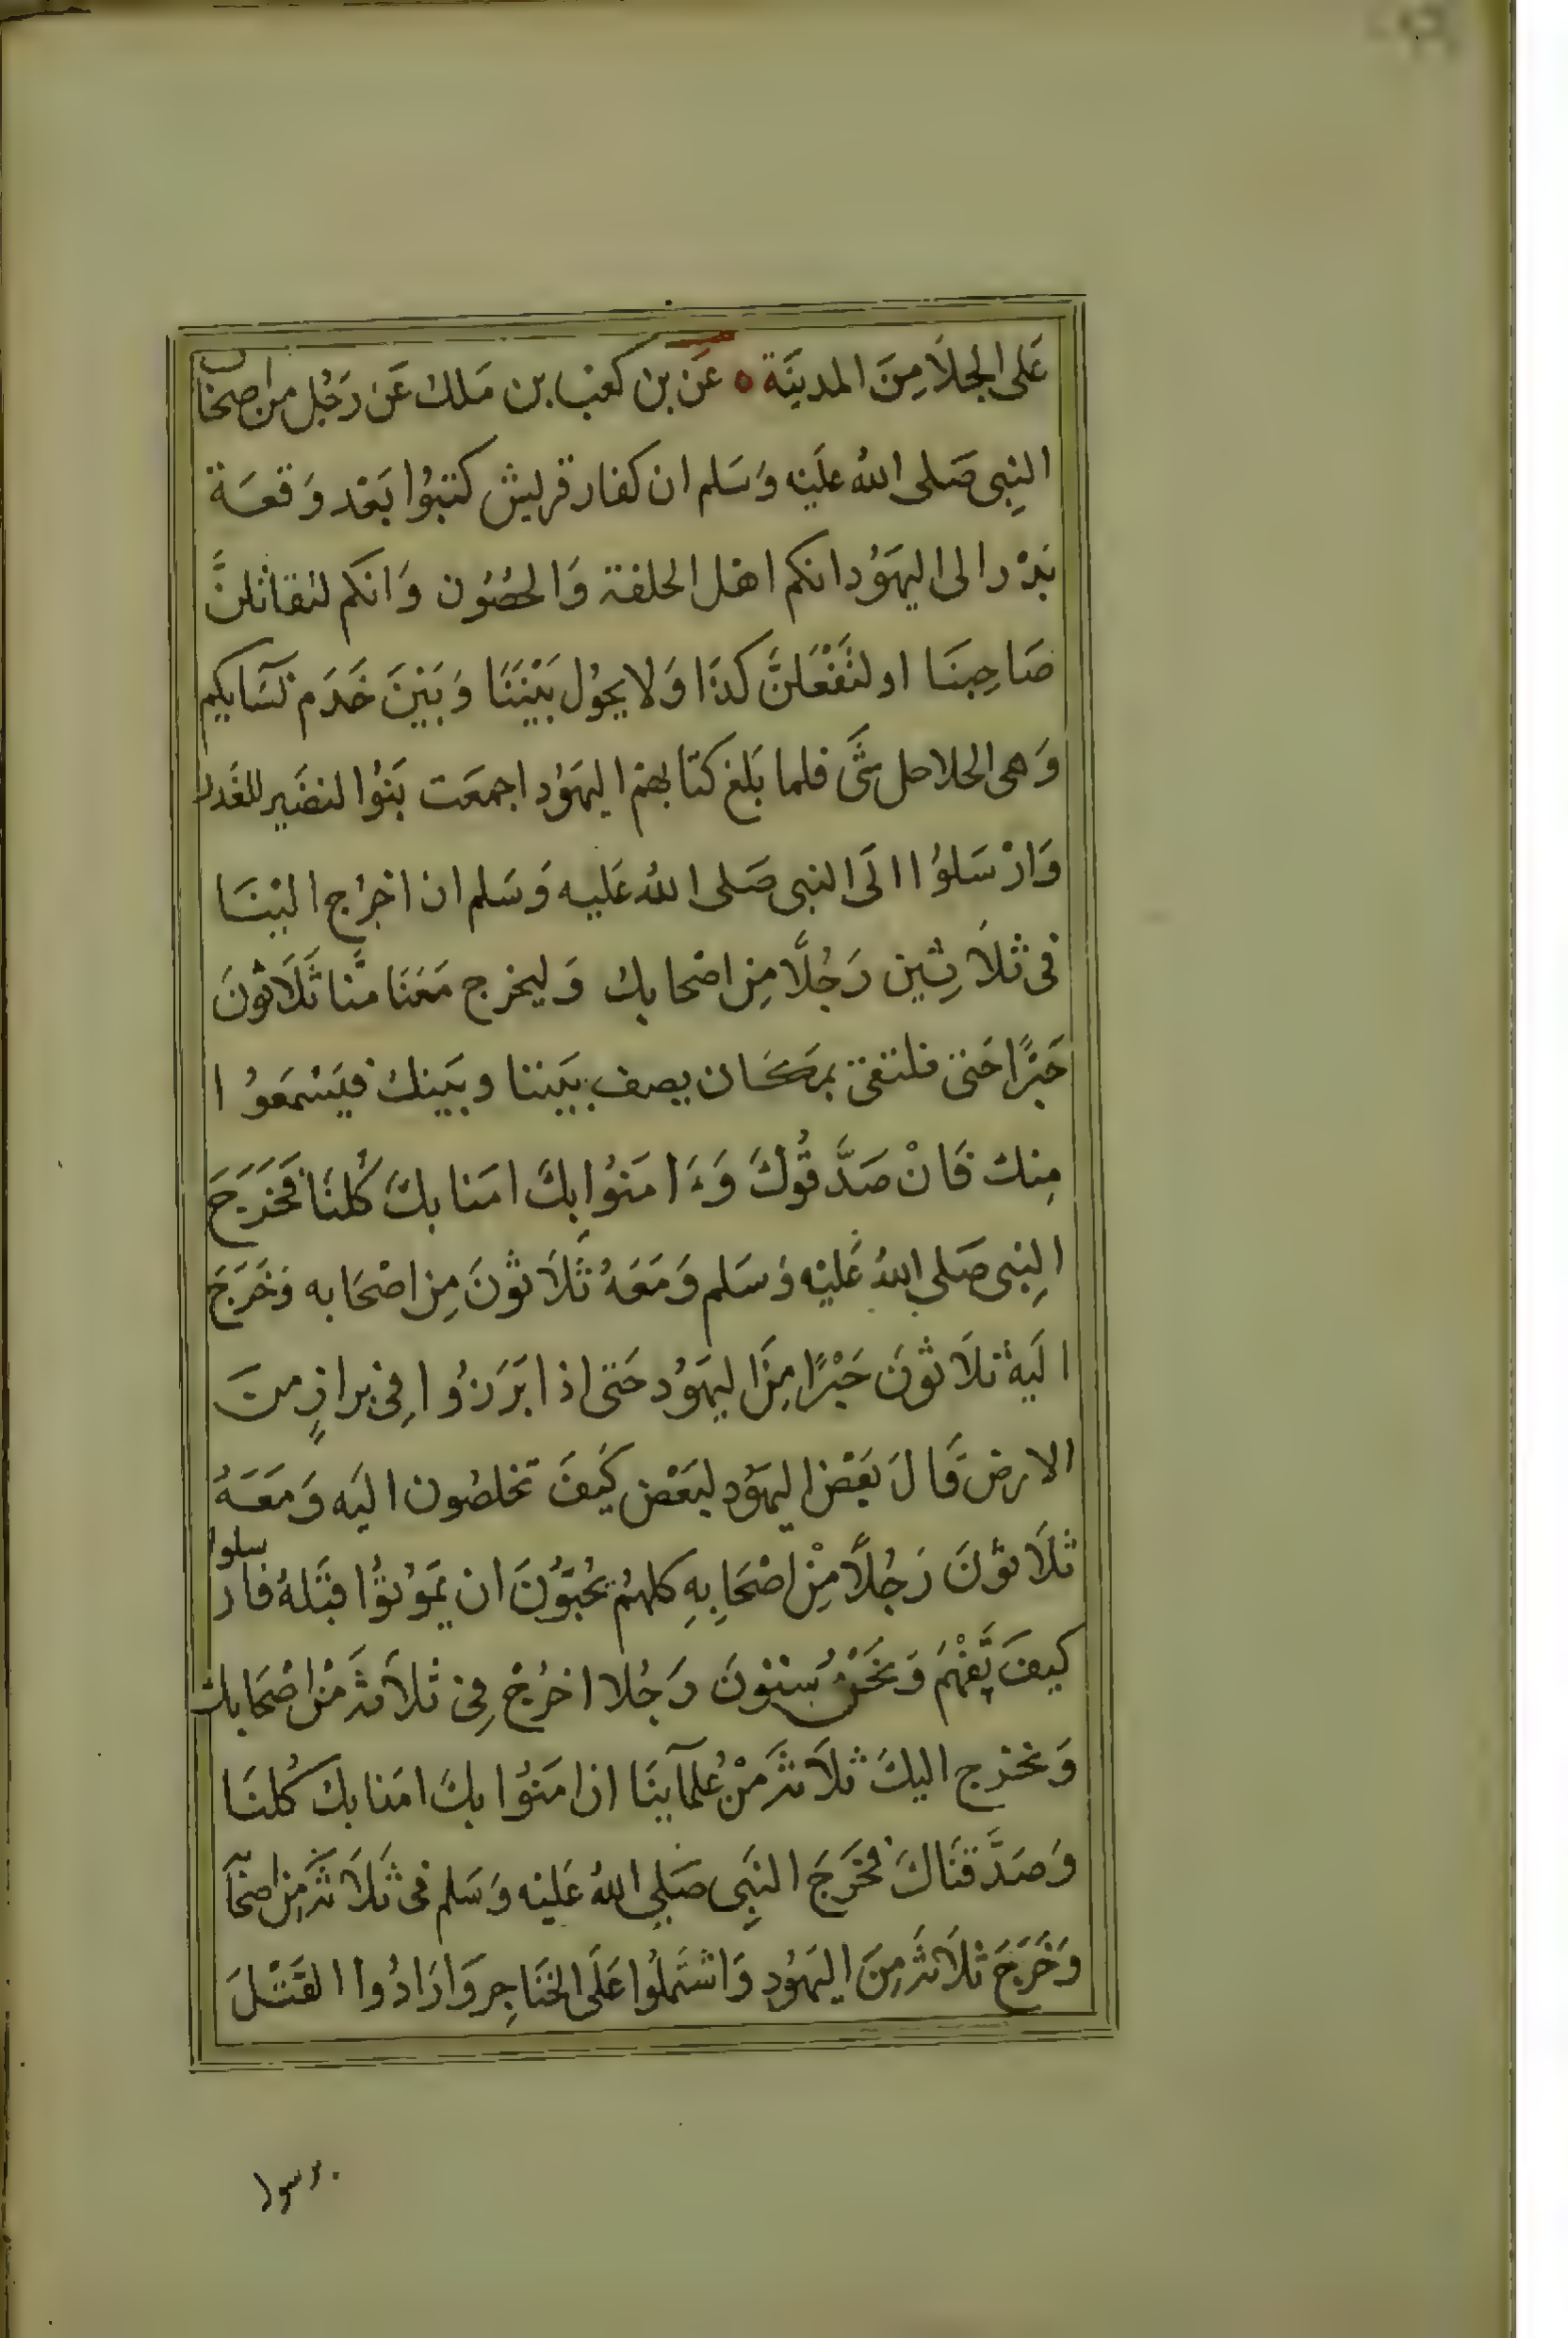 عَلى الجلَا مِنَ المدينَة ه عَن بن كعْب بن مَلك عَن رَجُل مِن اصحَاب
النبِى صَلى اللهُ علَيْه وَسَلم ان كفار قريش كتبُوا بَعْد وَقعَة
بَدْر الى اليهَوُد انكم اهْل الحلقة وَالحصُون وَانكم لتقاتلنَّ
صَاحِبنَا او لنَفْعَلنَّ كذَا وَلا يحوُل بَيْنَنَا وَبَيْنَ خَدَم نسَآيكم
وَهى الحلاحل شَّى فلما بَلغ كتابهمْ اليهَوُد اجمعَت بَنوُا لنضَير للغَدر
وَارْسَلوُا الَى النبى صَلى اللهُ عَليه وَسَلم ان اخرُج اليْنَا
فى ثلَاثِين رَجُلًا مِن اصْحابك وَليخرج مَعَنَا منَّا ثَلَاثونَ
حَبْرًا حَتى فلتقى بمَكَان يصف بيَننا وبَينك فيَسْمَعوُا
مِنك فَانْ صَدَّقوُكَ وَءَامَنوُا بِكَ امَنا بكَ كُلنَا فَخَرَجَ
النِبى صَلى اللهُ عَليْه وَسَلم وَمَعَهُ ثَلَاثونَ مِن اصْحَابه وَخَرَجَ
الَيهْ ثلَاثونَ حَبْرًا مِنَ اليهَوُد حَتى اذا بَرَزُوا فِى برازٍ منَ
الارض قَالَ بَعْض اليهَوُد لبَعْض كَيفَ تخلصُون اليَه وَمَعَهُ
ثلَاثونَ رَجُلًا مِنْ اصْحَابِهِ كلهمُ يحُبّوُنَ ان يمَوُتوُا قبَلهُ فارسلوا
كيفَ نَفْهَمُ وَنحَنُ سِتوْنَ رَجُلا اخرُجْ فِى ثلَاثة مِنْ اصْحَابك
وَنخرج اليكَ ثلَاثة مِنْ عُلمآينَا ان امَنوُا بكَ امَنا بك كُلنَا
وَصَدَّقنَاكَ فخَرَجَ النَبِى صَلى اللهُ عَليْه وَسَلم فى ثَلَاثة مِن اصحَآبه
وَخَرَجَ ثلَاثة مِنَ اليَهوُدِ وَاشتَملوُا عَلَى الخَنَاجِر وَارَادُوا القَتْلَ